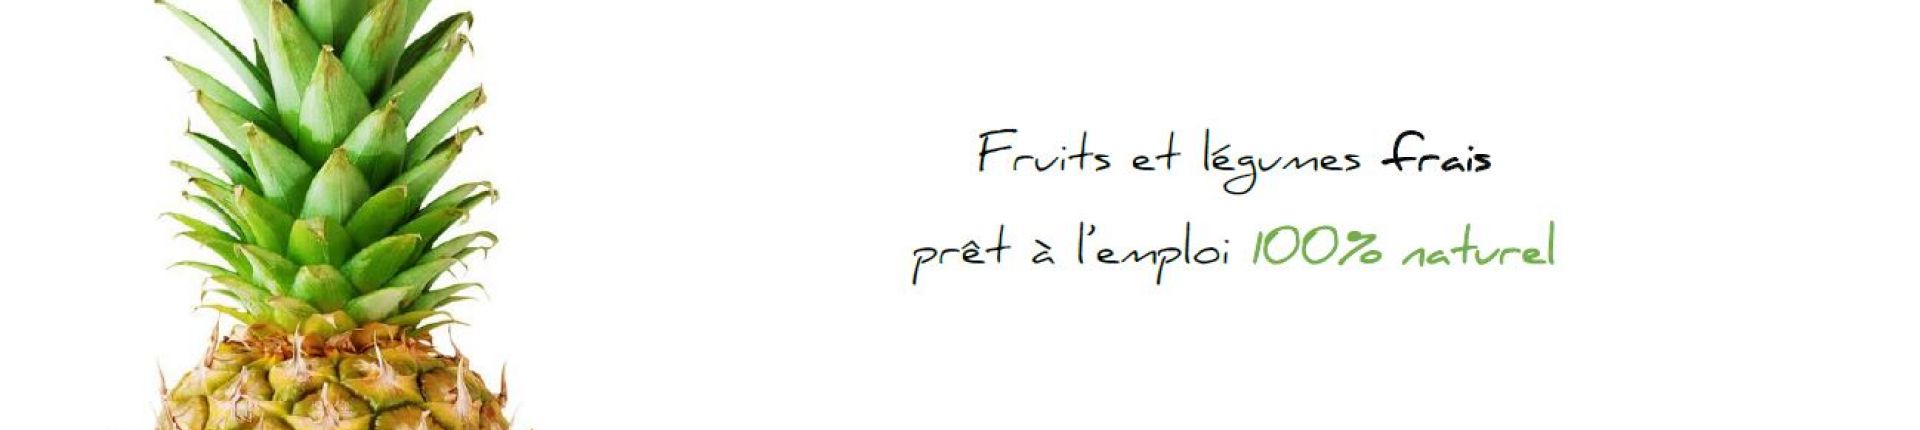 Fruits et légumes frais
prêt à l'emploi 100% naturel